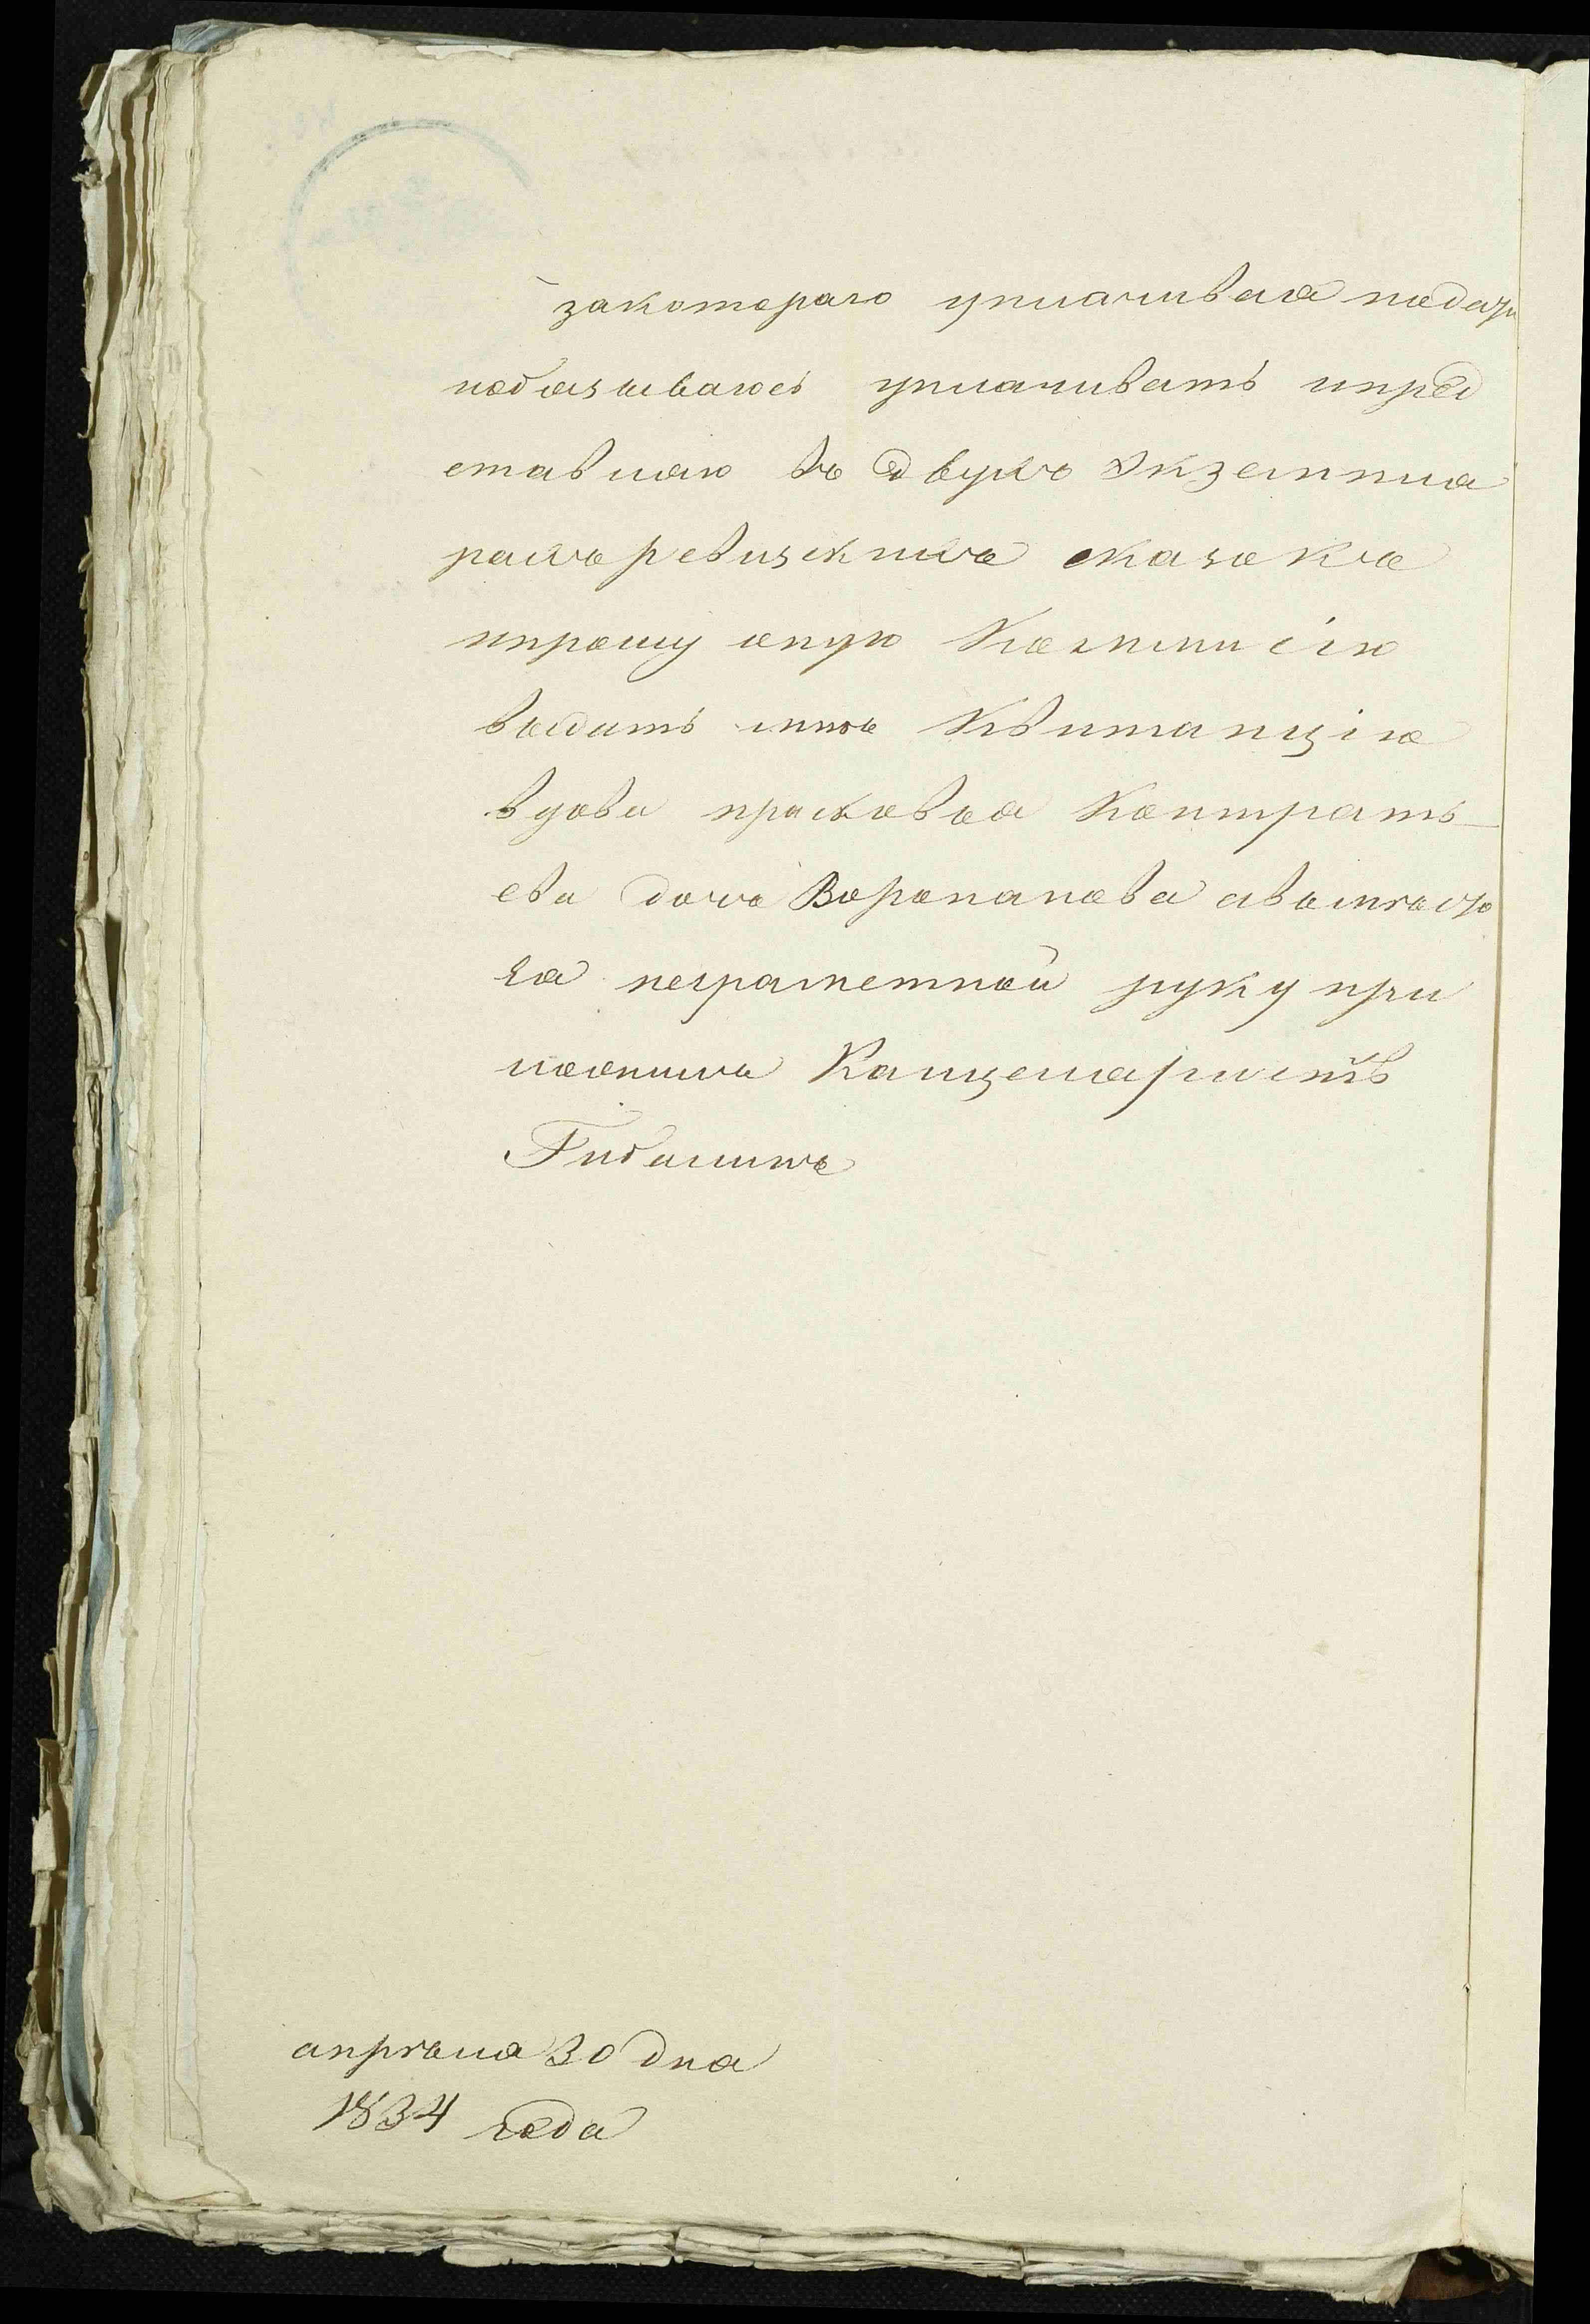 закотораго уплачивала подати
иобязываюсь уплачивать ипред
ставляю въ двухъ экземпля
рахъ ревизскихъ сказакъ
ипрошу оную Коммисію
выдать мнѣ Квитанцію
вдова прасковья Контрать
ева дочь Воропанова авместо
ея неграметной руку при
ложилъ Канцеляристъ
апрѣля 30 дня
1834 года